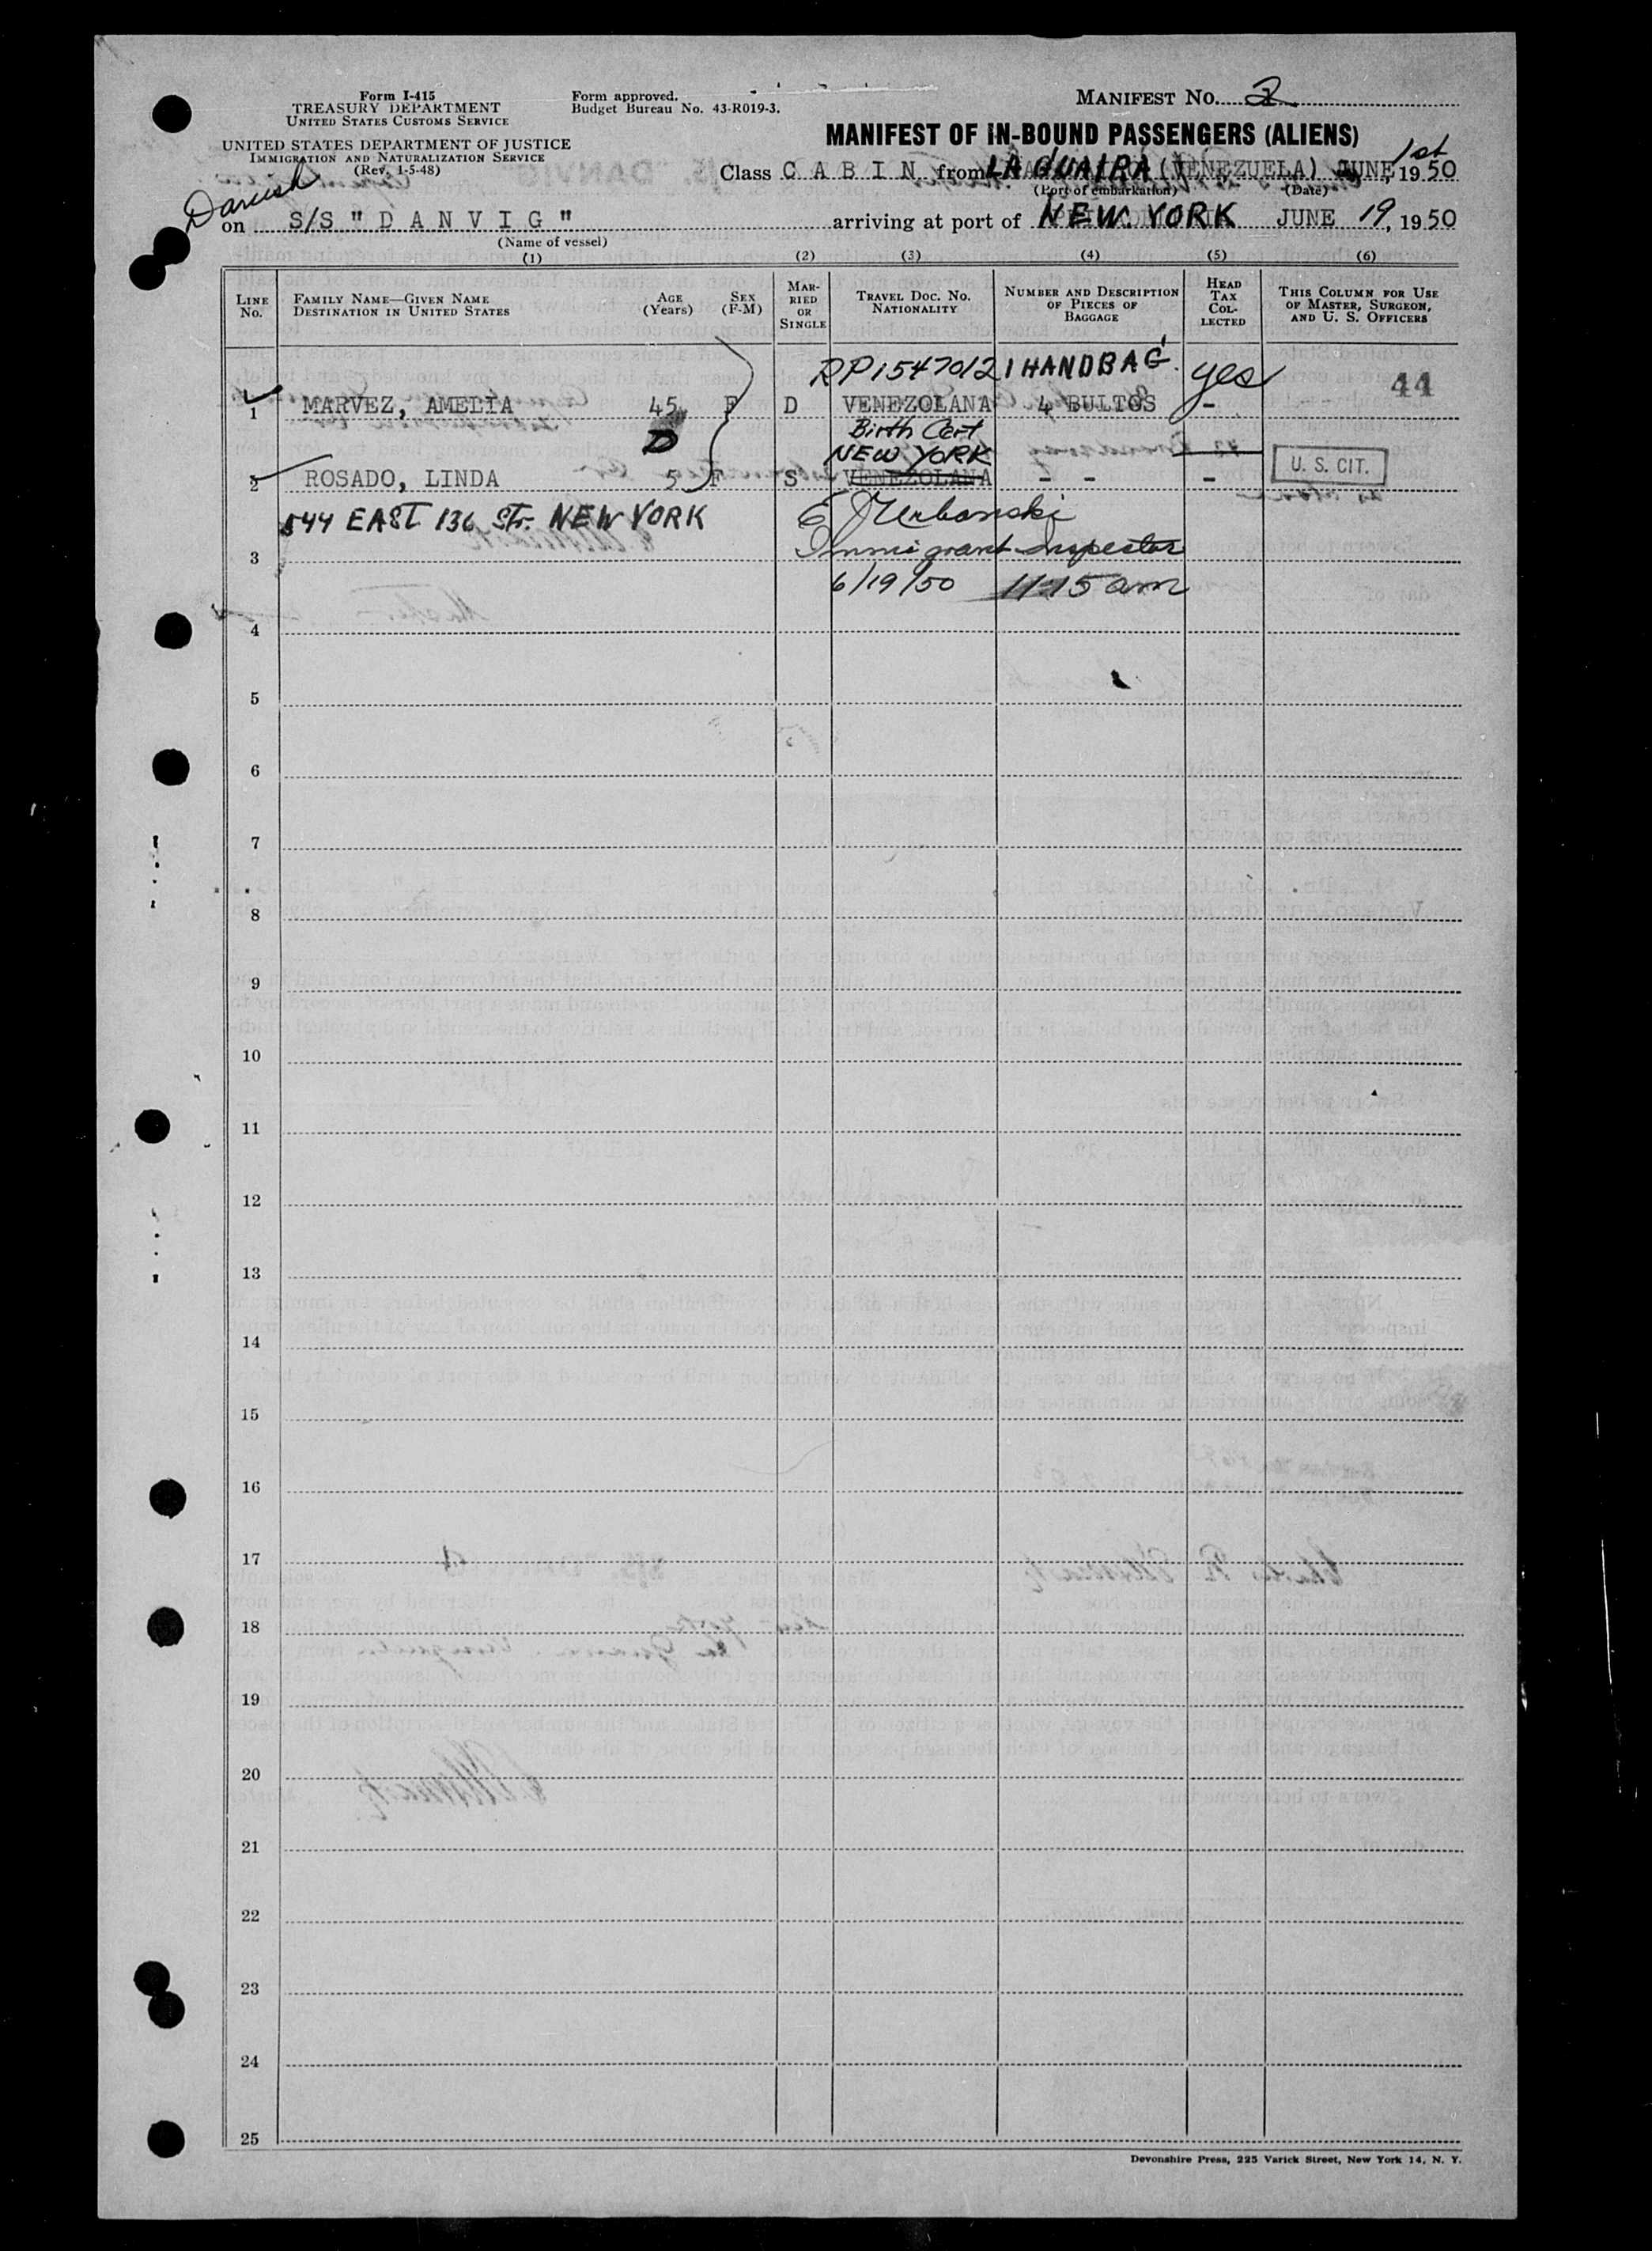 Form I-415
TREASURY DEPARTMENT
UNITED STATES CUSTOMS SERVICE
UNITED STATES DEPARTMENT OF JUSTICE
IMMIGRATION AND NATURALIZATION SERVICE
(Rev. 1-5-48)
Form approved.
Budget Bureau No. 43-R019-3.
MANIFEST No. 2
MANIFEST OF IN-BOUND PASSENGERS (ALIENS)
Class CABIN from LA GUAIRA (VENEZUELA) JUNE 1st, 1950
(Port of embarkation) (Date)
Danish
on S/S "DANVIG" arriving at port of NEW YORK JUNE 19, 1950
(Name of vessel)
(1) (2) (3) (4) (5) (6)
LINE No.
FAMILY NAME—GIVEN NAME
DESTINATION IN UNITED STATES
AGE (Years)
SEX (F-M)
MARRIED OR SINGLE
TRAVEL DOC. NO. NATIONALITY
NUMBER AND DESCRIPTION OF PIECES OF BAGGAGE
HEAD TAX COLLECTED
THIS COLUMN FOR USE OF MASTER, SURGEON, AND U. S. OFFICERS
RP1547012 1 HANDBAG yes 44
1 MARVEZ, AMELIA 45 F D VENEZOLANA 4 BULTOS -
D Birth Cert
NEW YORK U. S. CIT.
2 ROSADO, LINDA 5 F S VENEZOLANA - - -
544 EAST 136 Str. NEW YORK E J Urbanski
Immigrant Inspector
3
6/19/50 11:15 am
4
5
6
7
8
9
10
11
12
13
14
15
16
17
18
19
20
21
22
23
24
25
Devonshire Press, 225 Varick Street, New York 14, N. Y.